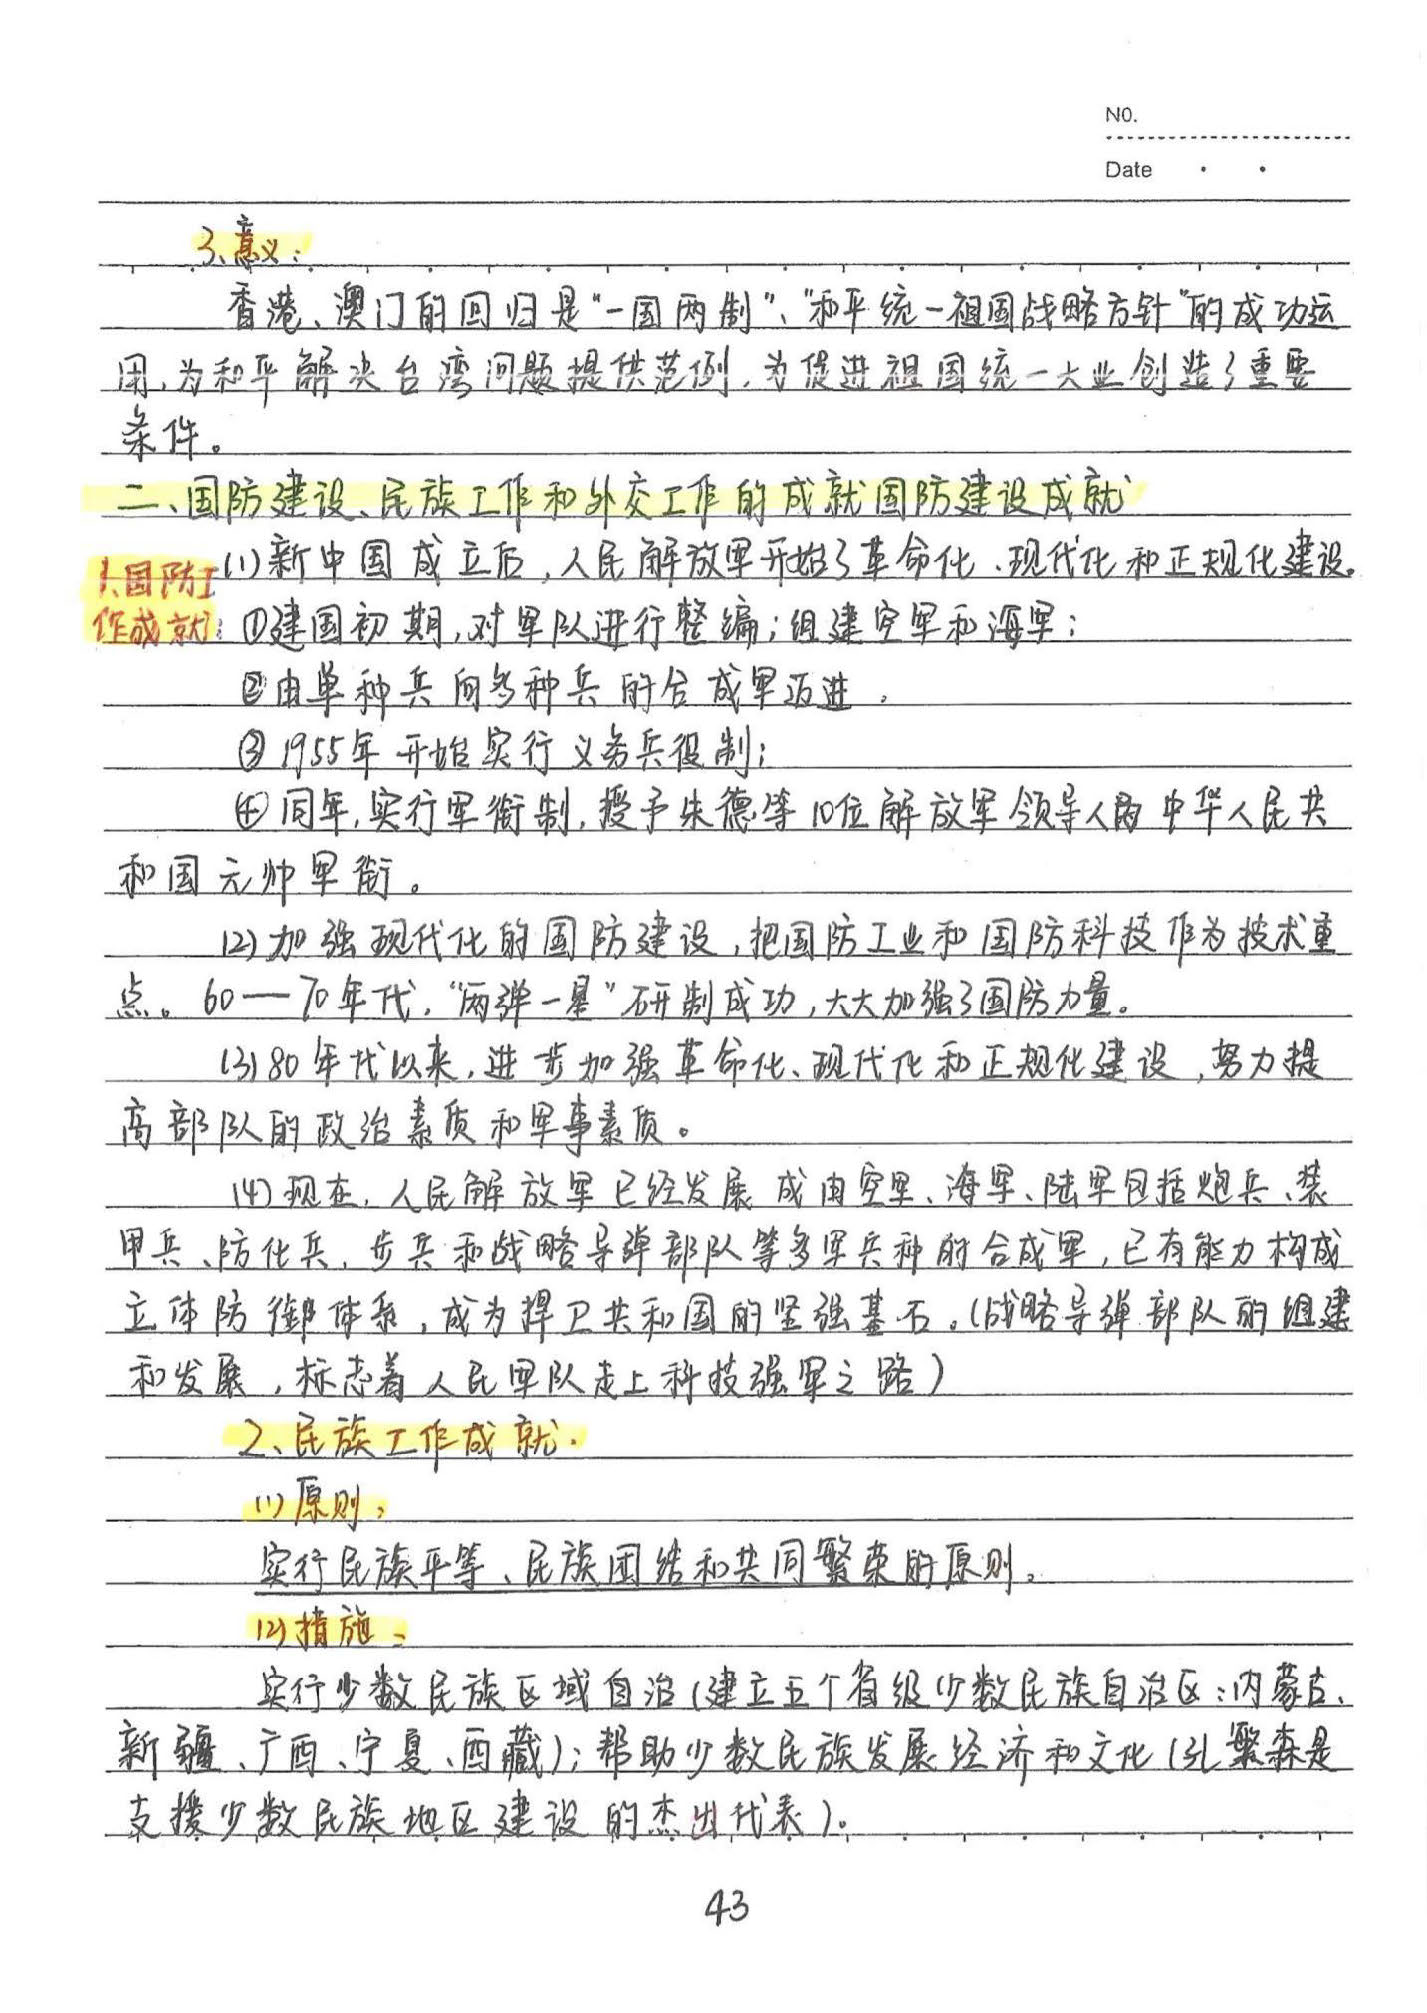 NO.
Date
3、意义：
香港、澳门的回归是“一国两制”、“和平统一祖国战略方针”的成功运
用，为和平解决台湾问题提供范例，为促进祖国统一大业创造了重要
条件。
二、国防建设、民族工作和外交工作的成就国防建设成就
1、国防工
作成就：
(1)新中国成立后，人民解放军开始了革命化、现代化和正规化建设。
①建国初期，对军队进行整编；组建空军和海军；
②由单种兵向多种兵的合成军迈进。
③1955年开始实行义务兵役制；
④同年，实行军衔制，授予朱德等10位解放军领导人为中华人民共
和国元帅军衔。
(2)加强现代化的国防建设，把国防工业和国防科技作为技术重
点。60—70年代，“两弹一星”研制成功，大大加强了国防力量。
(3)80年代以来，进步加强革命化、现代化和正规化建设，努力提
高部队的政治素质和军事素质。
(4)现在，人民解放军已经发展成由空军、海军、陆军包括炮兵、装
甲兵、防化兵、步兵和战略导弹部队等多军兵种的合成军，已有能力构成
立体防御体系，成为捍卫共和国的坚强基石。(战略导弹部队的组建
和发展，标志着人民军队走上科技强军之路)
2、民族工作成就.
(1)原则：
实行民族平等、民族团结和共同繁荣的原则。
(2)措施：
实行少数民族区域自治(建立五个省级少数民族自治区：内蒙古、
新疆、广西、宁夏、西藏)；帮助少数民族发展经济和文化(孔繁森是
支援少数民族地区建设的杰出代表)。
43